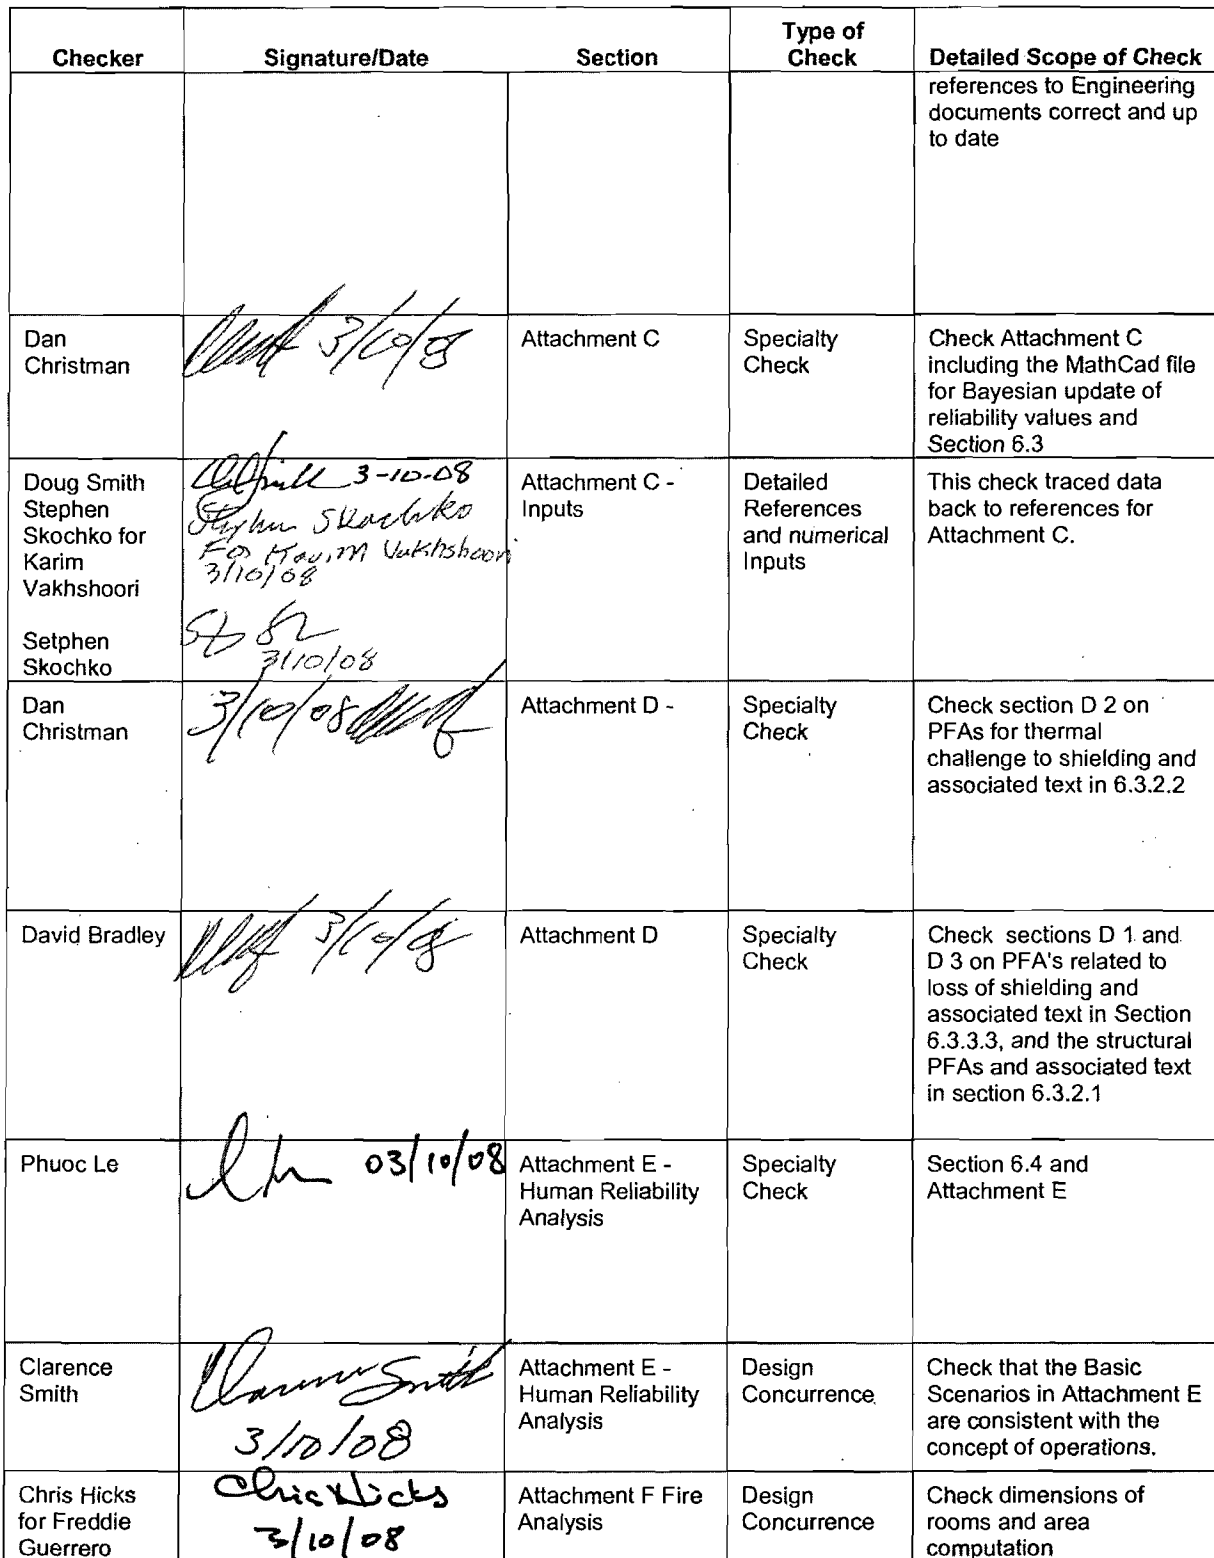 Checker Signature/Date Section Type of Check Detailed Scope of Check
references to Engineering
documents correct and up
to date
Dan
Christman
3/10/08
Attachment C
Specialty
Check
Check Attachment C
including the MathCad file
for Bayesian update of
reliability values and
Section 6.3
Doug Smith
Stephen
Skochko for
Karim
Vakhshoori
Setphen
Skochko
3-10-08
Stephen Skochko
For Karim Vakhshoori
3/10/08
3/10/08
Attachment C -
Inputs
Detailed
References
and numerical
Inputs
This check traced data
back to references for
Attachment C.
Dan
Christman
3/10/08
Attachment D -
Specialty
Check
Check section D 2 on
PFAs for thermal
challenge to shielding and
associated text in 6.3.2.2
David Bradley
3/10/08
Attachment D
Specialty
Check
Check sections D 1 and
D 3 on PFA's related to
loss of shielding and
associated text in Section
6.3.3.3, and the structural
PFAs and associated text
in section 6.3.2.1
Phuoc Le
03/10/08
Attachment E -
Human Reliability
Analysis
Specialty
Check
Section 6.4 and
Attachment E
Clarence
Smith
Clarence Smith
3/10/08
Attachment E -
Human Reliability
Analysis
Design
Concurrence
Check that the Basic
Scenarios in Attachment E
are consistent with the
concept of operations.
Chris Hicks
for Freddie
Guerrero
Chris Hicks
3/10/08
Attachment F Fire
Analysis
Design
Concurrence
Check dimensions of
rooms and area
computation